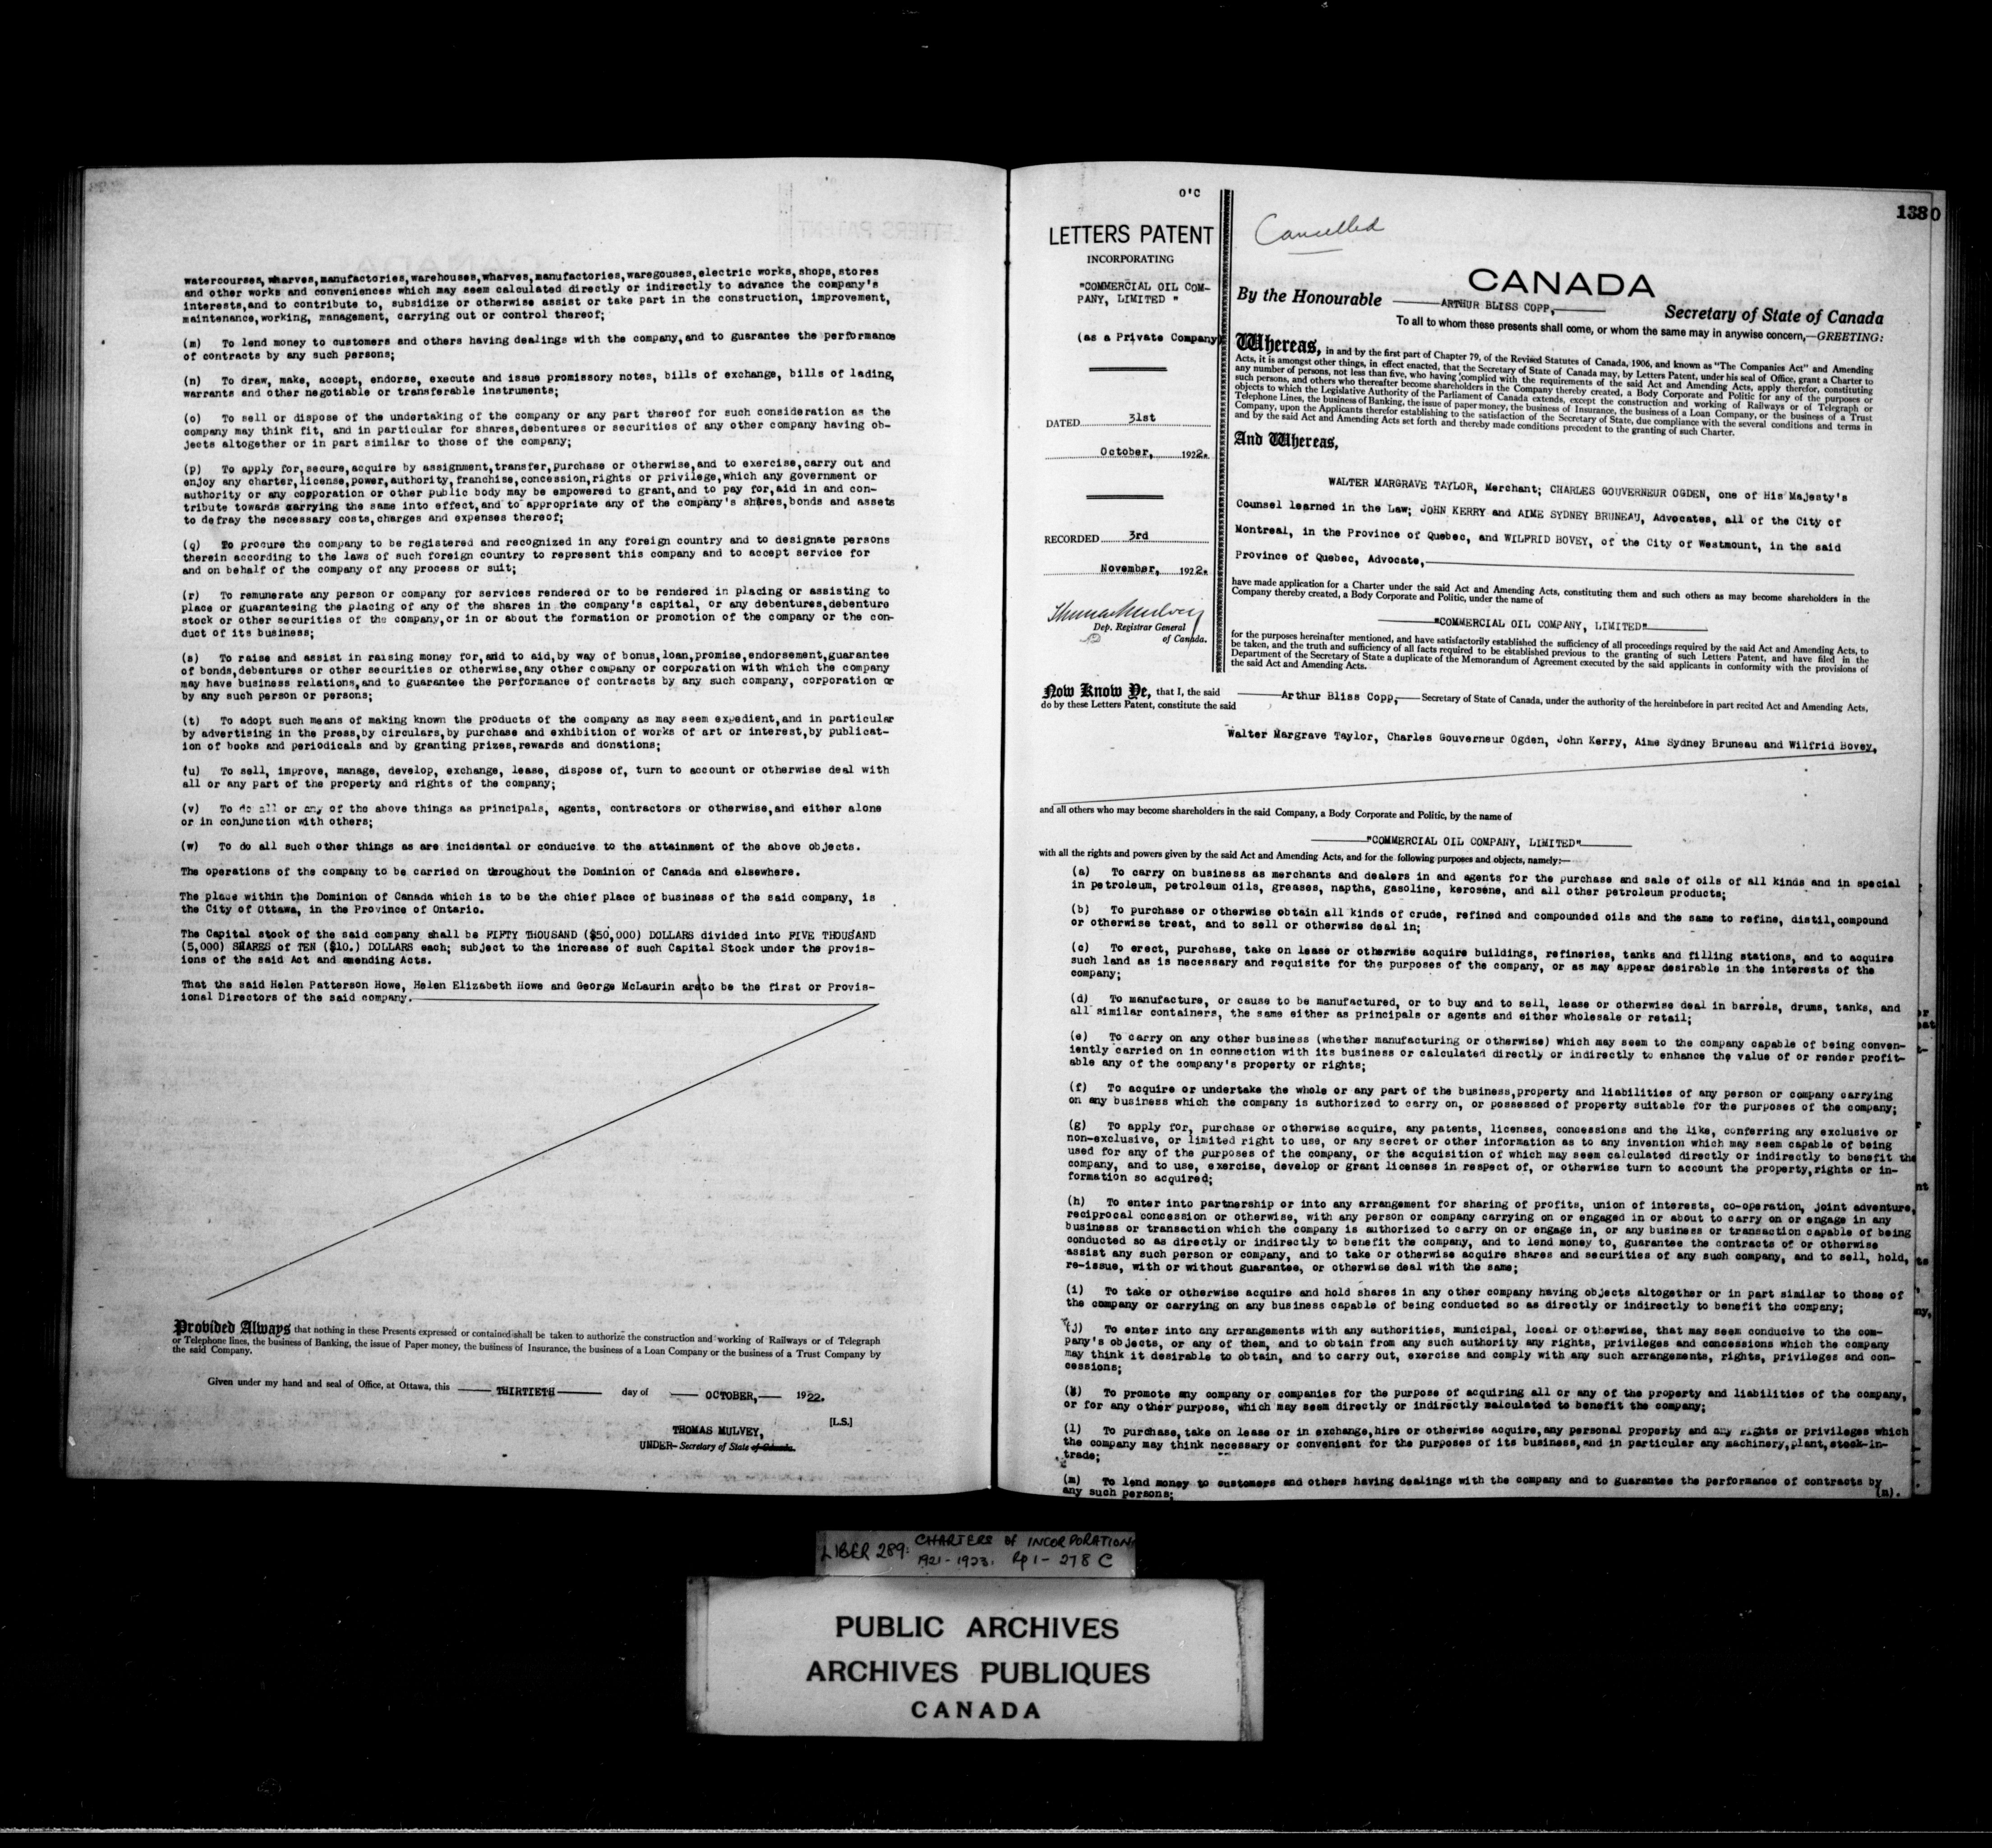 watercourses, wharves, manufactories, warehouses, wharves, manufactories, waregouses, electric works, shops, stores
and other works and conveniences which may seem calculated directly or indirectly to advance the company's
interests, and to contribute to, subsidize or otherwise assist or take part in the construction, improvement,
maintenance, working, management, carrying out or control thereof;
(m) To lend money to customers and others having dealings with the company, and to guarantee the performance
of contracts by any such persons;
(n) To draw, make, accept, endorse, execute and issue promissory notes, bills of exchange, bills of lading,
warrants and other negotiable or transferable instruments;
(o) To sell or dispose of the undertaking of the company or any part thereof for such consideration as the
company may think fit, and in particular for shares, debentures or securities of any other company having ob-
jects altogether or in part similar to those of the company;
(p) To apply for, secure, acquire by assignment, transfer, purchase or otherwise, and to exercise, carry out and
enjoy any charter, license, power, authority, franchise, concession, rights or privilege, which any government or
authority or any copporation or other public body may be empowered to grant, and to pay for, aid in and con-
tribute towards carrying the same into effect, and to appropriate any of the company's shares, bonds and assets
to defray the necessary costs, charges and expenses thereof;
(q) To procure the company to be registered and recognized in any foreign country and to designate persons
therein according to the laws of such foreign country to represent this company and to accept service for
and on behalf of the company of any process or suit;
(r) To remunerate any person or company for services rendered or to be rendered in placing or assisting to
place or guaranteeing the placing of any of the shares in the company's capital, or any debentures, debenture
stock or other securities of the company, or in or about the formation or promotion of the company or the con-
duct of its business;
(s) To raise and assist in raising money for, and to aid, by way of bonus, loan, promise, endorsement, guarantee
of bonds, debentures or other securities or otherwise, any other company or corporation with which the company
may have business relations, and to guarantee the performance of contracts by any such company, corporation or
by any such person or persons;
(t) To adopt such means of making known the products of the company as may seem expedient, and in particular
by advertising in the press, by circulars, by purchase and exhibition of works of art or interest, by publicat-
ion of books and periodicals and by granting prizes, rewards and donations;
(u) To sell, improve, manage, develop, exchange, lease, dispose of, turn to account or otherwise deal with
all or any part of the property and rights of the company;
(v) To do all or any of the above things as principals, agents, contractors or otherwise, and either alone
or in conjunction with others;
(w) To do all such other things as are incidental or conducive to the attainment of the above objects.
The operations of the company to be carried on throughout the Dominion of Canada and elsewhere.
The place within the Dominion of Canada which is to be the chief place of business of the said company, is
the City of Ottawa, in the Province of Ontario.
The Capital stock of the said company shall be FIFTY THOUSAND ($50,000) DOLLARS divided into FIVE THOUSAND
(5,000) SHARES of TEN ($10.) DOLLARS each; subject to the increase of such Capital Stock under the provis-
ions of the said Act and amending Acts.
That the said Helen Patterson Howe, Helen Elizabeth Howe and George McLaurin are to be the first or Provis-
ional Directors of the said company.
Provided Always that nothing in these Presents expressed or contained shall be taken to authorize the construction and working of Railways or of Telegraph
or Telephone lines, the business of Banking, the issue of Paper money, the business of Insurance, the business of a Loan Company or the business of a Trust Company by
the said Company.
Given under my hand and seal of Office, at Ottawa, this THIRTIETH day of OCTOBER, 1922.
[L.S.]
THOMAS MULVEY,
UNDER- Secretary of State of Canada.
O'C
LETTERS PATENT
INCORPORATING
"COMMERCIAL OIL COM-
PANY, LIMITED "
(as a Private Company)
DATED 31st
October, 1922.
RECORDED 3rd
November, 1922.
Thomas Mulvey
Dep. Registrar General
of Canada.
1380
Cancelled
CANADA
By the Honourable ARTHUR BLISS COPP, Secretary of State of Canada
To all to whom these presents shall come, or whom the same may in anywise concern,—GREETING:
Whereas, in and by the first part of Chapter 79, of the Revised Statutes of Canada, 1906, and known as "The Companies Act" and Amending
Acts, it is amongst other things, in effect enacted, that the Secretary of State of Canada may, by Letters Patent, under his seal of Office, grant a Charter to
any number of persons, not less than five, who having complied with the requirements of the said Act and Amending Acts, apply therefor, constituting
such persons, and others who thereafter become shareholders in the Company thereby created, a Body Corporate and Politic for any of the purposes or
objects to which the Legislative Authority of the Parliament of Canada extends, except the construction and working of Railways or of Telegraph or
Telephone Lines, the business of Banking, the issue of paper money, the business of Insurance, the business of a Loan Company, or the business of a Trust
Company, upon the Applicants therefor establishing to the satisfaction of the Secretary of State, due compliance with the several conditions and terms in
and by the said Act and Amending Acts set forth and thereby made conditions precedent to the granting of such Charter.
And Whereas,
WALTER MARGRAVE TAYLOR, Merchant; CHARLES GOUVERNEUR OGDEN, one of His Majesty's
Counsel learned in the Law; JOHN KERRY and AIME SYDNEY BRUNEAU, Advocates, all of the City of
Montreal, in the Province of Quebec, and WILFRID BOVEY, of the City of Westmount, in the said
Province of Quebec, Advocate,
have made application for a Charter under the said Act and Amending Acts, constituting them and such others as may become shareholders in the
Company thereby created, a Body Corporate and Politic, under the name of
"COMMERCIAL OIL COMPANY, LIMITED"
for the purposes hereinafter mentioned, and have satisfactorily established the sufficiency of all proceedings required by the said Act and Amending Acts, to
be taken, and the truth and sufficiency of all facts required to be established previous to the granting of such Letters Patent, and have filed in the
Department of the Secretary of State a duplicate of the Memorandum of Agreement executed by the said applicants in conformity with the provisions of
the said Act and Amending Acts.
Now Know Ye, that I, the said Arthur Bliss Copp, Secretary of State of Canada, under the authority of the hereinbefore in part recited Act and Amending Acts,
do by these Letters Patent, constitute the said
Walter Margrave Taylor, Charles Gouverneur Ogden, John Kerry, Aime Sydney Bruneau and Wilfrid Bovey,
and all others who may become shareholders in the said Company, a Body Corporate and Politic, by the name of
"COMMERCIAL OIL COMPANY, LIMITED"
with all the rights and powers given by the said Act and Amending Acts, and for the following purposes and objects, namely:—
(a) To carry on business as merchants and dealers in and agents for the purchase and sale of oils of all kinds and in special
in petroleum, petroleum oils, greases, naptha, gasoline, kerosene, and all other petroleum products;
(b) To purchase or otherwise obtain all kinds of crude, refined and compounded oils and the same to refine, distil, compound
or otherwise treat, and to sell or otherwise deal in;
(c) To erect, purchase, take on lease or otherwise acquire buildings, refineries, tanks and filling stations, and to acquire
such land as is necessary and requisite for the purposes of the company, or as may appear desirable in the interests of the
company;
(d) To manufacture, or cause to be manufactured, or to buy and to sell, lease or otherwise deal in barrels, drums, tanks, and
all similar containers, the same either as principals or agents and either wholesale or retail;
(e) To carry on any other business (whether manufacturing or otherwise) which may seem to the company capable of being conven-
iently carried on in connection with its business or calculated directly or indirectly to enhance the value of or render profit-
able any of the company's property or rights;
(f) To acquire or undertake the whole or any part of the business, property and liabilities of any person or company carrying
on any business which the company is authorized to carry on, or possessed of property suitable for the purposes of the company;
(g) To apply for, purchase or otherwise acquire, any patents, licenses, concessions and the like, conferring any exclusive or
non-exclusive, or limited right to use, or any secret or other information as to any invention which may seem capable of being
used for any of the purposes of the company, or the acquisition of which may seem calculated directly or indirectly to benefit the
company, and to use, exercise, develop or grant licenses in respect of, or otherwise turn to account the property, rights or in-
formation so acquired;
(h) To enter into partnership or into any arrangement for sharing of profits, union of interests, co-operation, joint adventure,
reciprocal concession or otherwise, with any person or company carrying on or engaged in or about to carry on or engage in any
business or transaction which the company is authorized to carry on or engage in, or any business or transaction capable of being
conducted so as directly or indirectly to benefit the company, and to lend money to, guarantee the contracts of or otherwise
assist any such person or company, and to take or otherwise acquire shares and securities of any such company, and to sell, hold,
re-issue, with or without guarantee, or otherwise deal with the same;
(i) To take or otherwise acquire and hold shares in any other company having objects altogether or in part similar to those of
the company or carrying on any business capable of being conducted so as directly or indirectly to benefit the company;
(j) To enter into any arrangements with any authorities, municipal, local or otherwise, that may seem conducive to the com-
pany's objects, or any of them, and to obtain from any such authority any rights, privileges and concessions which the company
may think it desirable to obtain, and to carry out, exercise and comply with any such arrangements, rights, privileges and con-
cessions;
(k) To promote any company or companies for the purpose of acquiring all or any of the property and liabilities of the company,
or for any other purpose, which may seem directly or indirectly calculated to benefit the company;
(l) To purchase, take on lease or in exchange, hire or otherwise acquire, any personal property and any rights or privileges which
the company may think necessary or convenient for the purposes of its business, and in particular any machinery, plant, stock-in-
trade;
(m) To lend money to customers and others having dealings with the company and to guarantee the performance of contracts by
any such persons;
(n).
LIBER 289: CHARTERS OF INCORPORATION
1921-1923. Pp 1-278 C
PUBLIC ARCHIVES
ARCHIVES PUBLIQUES
CANADA